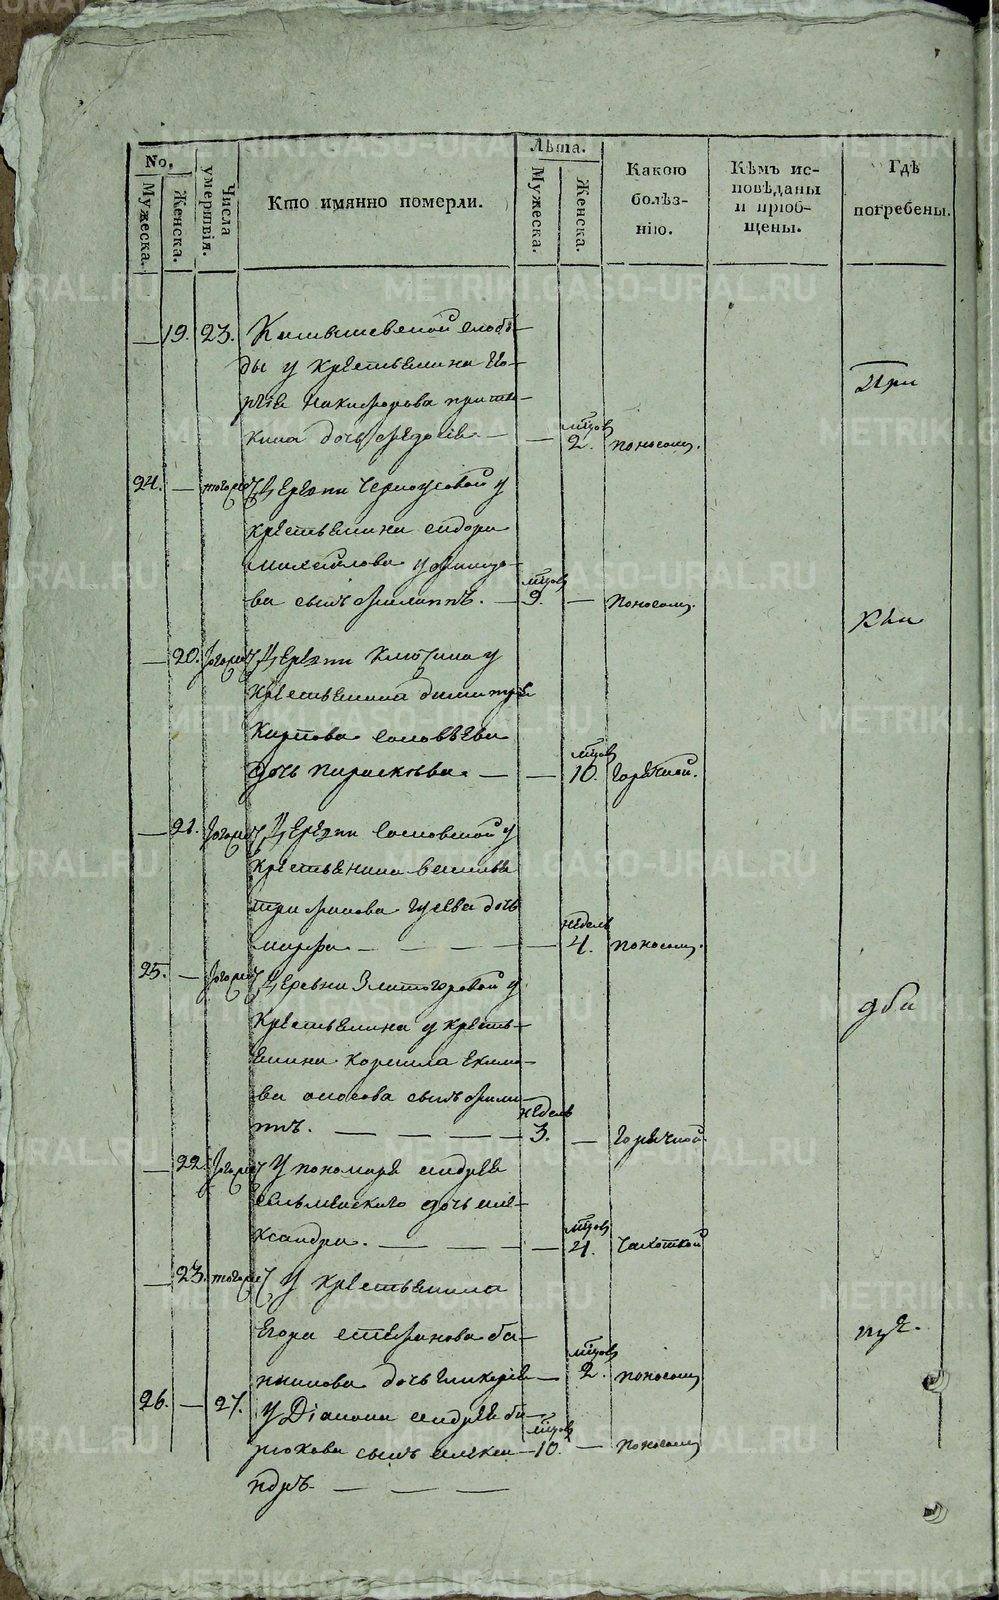 No.
Мужеска.
Женска.
Числа умертвія.
Кто имянно померли.
Лѣта.
Мужеска.
Женска.
Какою болѣз-нію.
Кѣмъ ис-повѣданы и пріоб-щены.
Гдѣ погребены.
— 19. 23. Камышевской слобо-
ды у крестьянина Ео-
никифорова
дочь Федосія — — мцов 2. поносом.
24. — тогож Деревни Черноусовой у
крестьянина сидора
михайлова
ва сынъ филиппъ. — мцов 9. — поносом.
— 20. тогож Деревни Ключика у
крестьянина димитрія
карпова соловьева
дочь параскева. — — мцов 10. горячкой.
— 21. тогож Деревни Сосновской у
крестьянина василья
трифанова гусева дочь
марфа — — — — недель 4. поносом.
25. — тогож Деревни Златогоровой у
крестьянина у кресть-
янина корнила екимо-
ва сынъ фили-
ппъ. — — — — недель 3. — горячкой.
— 22. тогож У пономаря андрея
дочь але-
ксандра. — — — — мцов 4. чахоткой
— 23. тогож У крестьянина
Егора стефанова ба-
нникова дочь гликерія — мцов 2. поносом
26. — 27. У Діакона андрея би-
рюкова сынъ алекса — мцов 10. — поносом
ндръ. — — —
При
пуе.